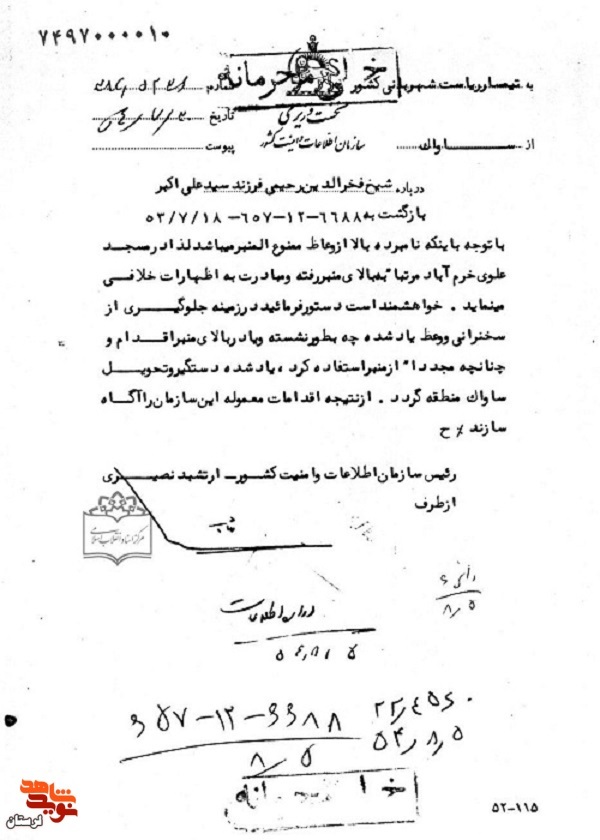 ۷۴۹۷۰۰۰۰۰۱۰
خیلی محرمانه
به تیمسار ریاست شهربانی کشور
شماره
نخست وزیری
تاریخ
از ساواک
سازمان اطلاعات و امنیت کشور
پیوست
درباره شیخ فخرالدین رحیمی فرزند سید علی اکبر
بازگشت به ۶۶۸۸-۱۲-۶۵۷-۵۳/۷/۱۸
با توجه باینکه نامبرده بالا از وعاظ ممنوع المنبر میباشد لذا در مسجد
علوی خرم آباد مرتبا" به بالای منبر رفته و مبادرت به اظهارات خلافی
مینماید . خواهشمند است دستور فرمائید در زمینه جلوگیری از
سخنرانی و وعظ یاد شده چه بطور نشسته و یا در بالای منبر اقدام و
چنانچه مجددا" از منبر استفاده کرد ، یاد شده دستگیر و تحویل
ساواک منطقه گردد . از نتیجه اقدامات معموله این سازمان را آگاه
سازند ٪ ح
رئیس سازمان اطلاعات و امنیت کشور ـ ارتشبد نصیری
از طرف
مرکز اسناد انقلاب اسلامی
اداره اطلاعات
۶۵۷-۱۲-۶۶۸۸
۸/۵
۵۴/۸/۵
خیلی محرمانه
۵۲-۱۱۵
نوید شاهد
لرستان